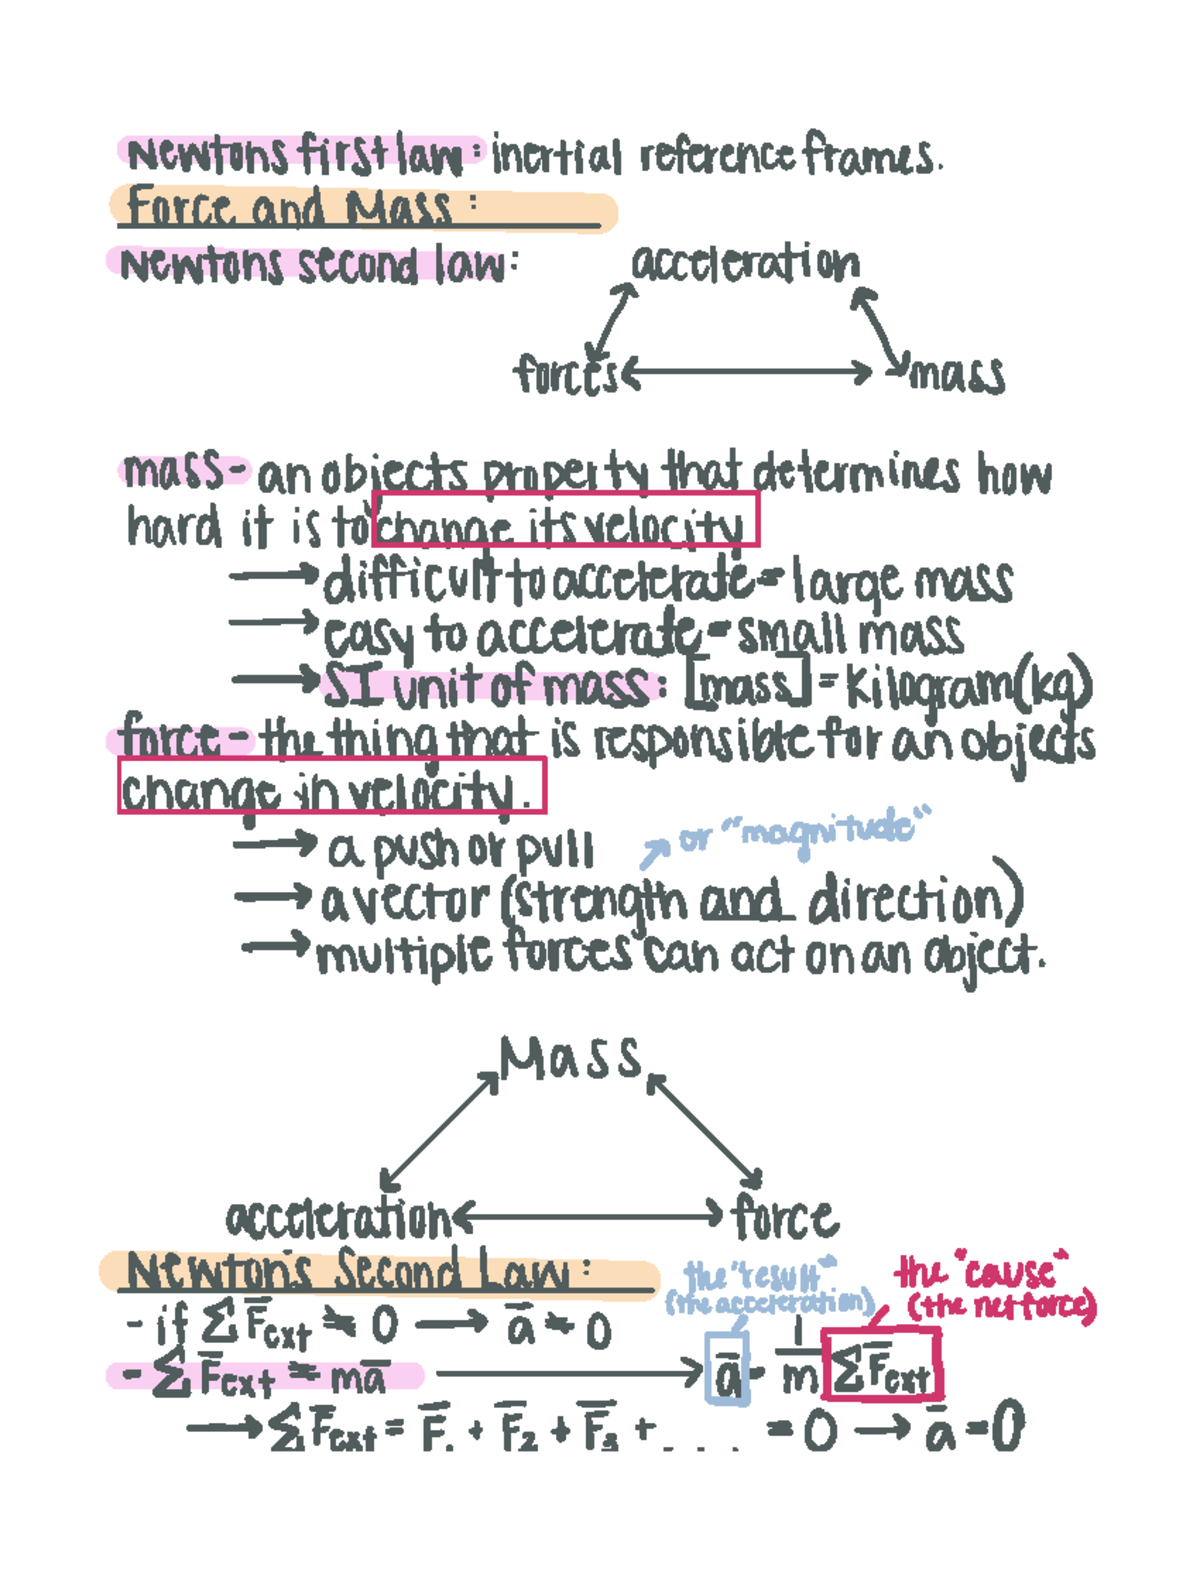 Newtons first law: inertial reference frames.
Force and Mass:
Newtons second law:
acceleration
forces
mass
mass - an objects property that determines how
hard it is to change its velocity
→ difficult to accelerate = large mass
→ easy to accelerate = small mass
→ SI unit of mass: [mass] = kilogram (kg)
force - the thing that is responsible for an objects
change in velocity.
→ a push or pull
↗ or "magnitude"
→ a vector (strength and direction)
→ multiple forces can act on an object.
Mass
acceleration
force
Newton's Second Law:
the "result"
(the acceleration)
the "cause"
(the net force)
- if Σ F̅ext ≠ 0 → a̅ ≠ 0
- Σ F̅ext = ma̅ → a̅ = 1/m Σ F̅ext
→ Σ F̅ext = F̅1 + F̅2 + F̅3 + .... = 0 → a̅ = 0